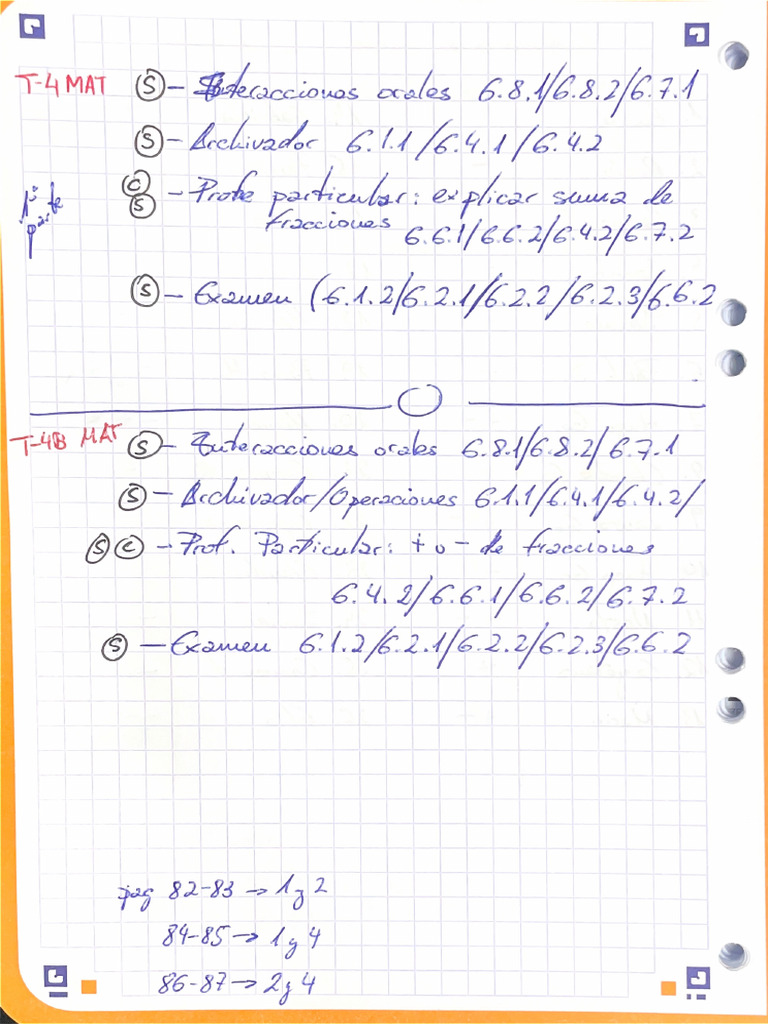 T-4 MAT (S) - Interacciones orales 6.8.1/6.8.2/6.7.1
(S) - Archivador 6.1.1/6.4.1/6.4.2
1º parte
(C) (S) - Profe particular: explicar suma de
fracciones 6.6.1/6.6.2/6.4.2/6.7.2
(S) - Examen (6.1.2/6.2.1/6.2.2/6.2.3/6.6.2
T-4B MAT (S) - Interacciones orales 6.8.1/6.8.2/6.7.1
(S) - Archivador/Operaciones 6.1.1/6.4.1/6.4.2/
(S) (C) - Prof. Particular: + o - de fracciones
6.4.2/6.6.1/6.6.2/6.7.2
(S) - Examen 6.1.2/6.2.1/6.2.2/6.2.3/6.6.2
pag 82-83 → 1 y 2
84-85 → 1 y 4
86-87 → 2 y 4